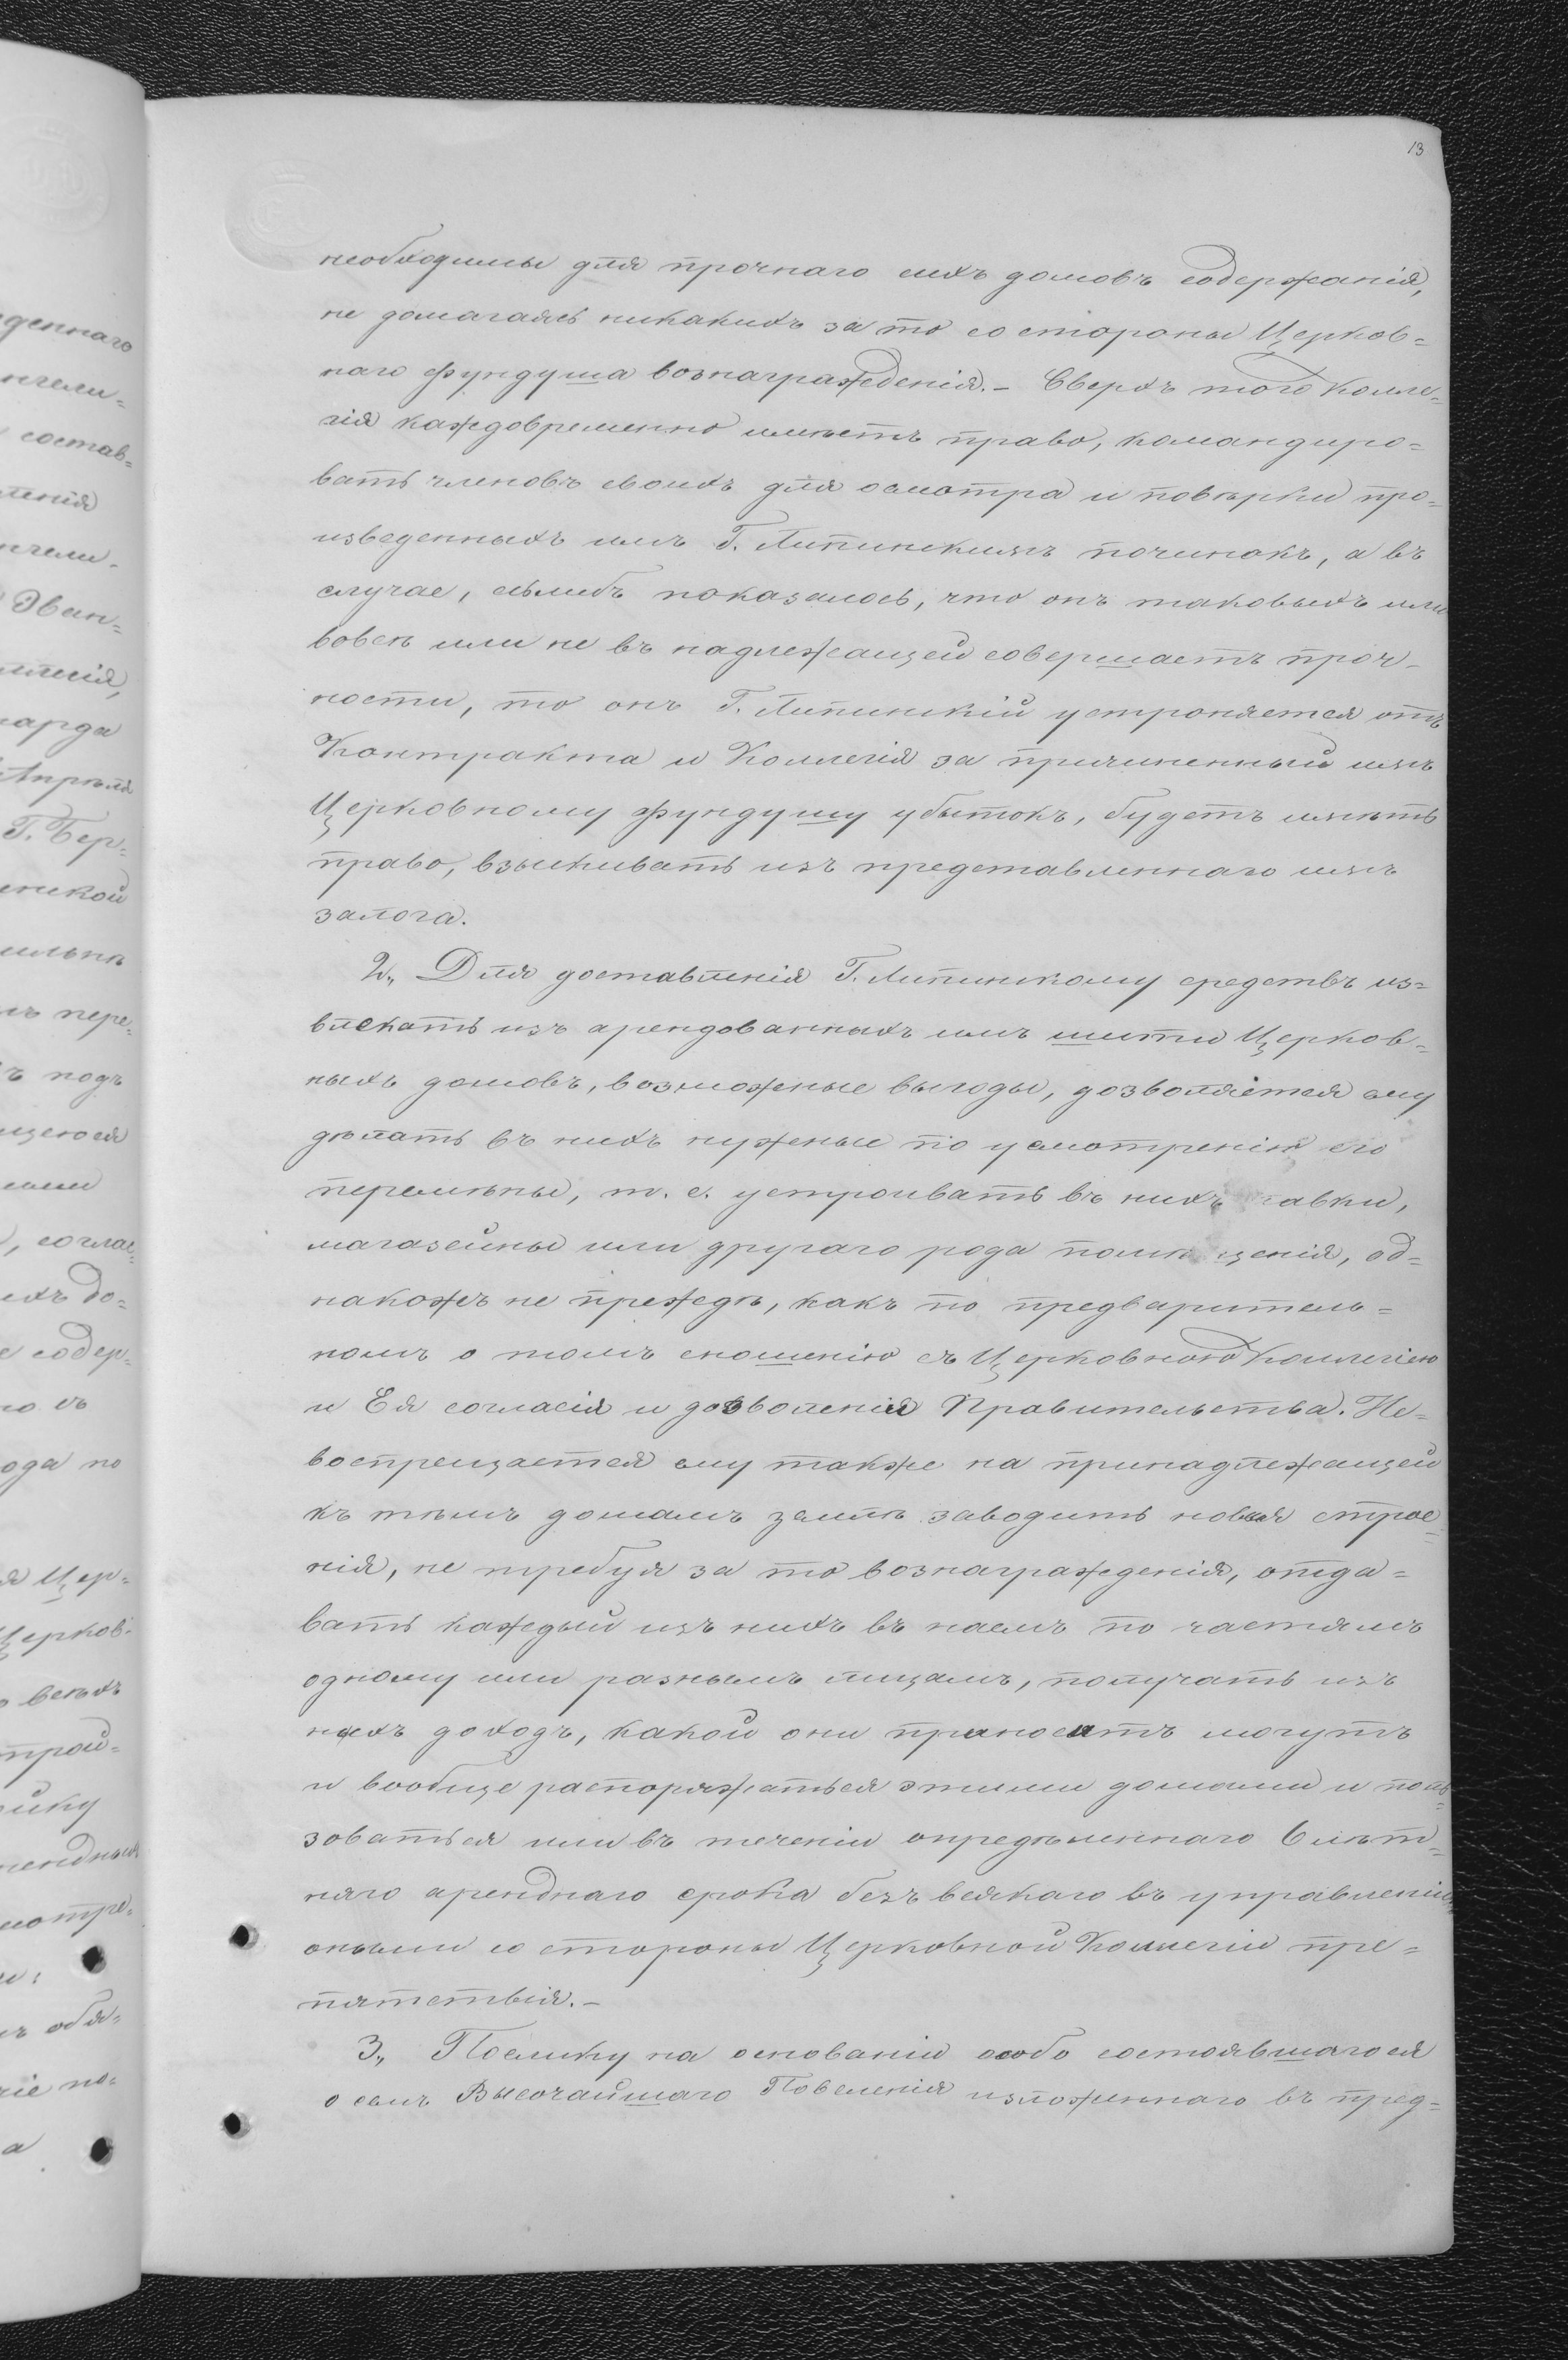 13
необходимы для прочнаго сихъ домовъ содержанія,
не домагаясь никакихъ за то со стороны Церков=
наго фундуша вознагражденія.- Сверхъ того Колле=
гія каждовременно имѣетъ право, командиро=
вать членовъ своихъ для осмотра и повѣрки про=
изведенныхъ имъ Г. Липинскимъ починокъ, а въ
случае, еслибъ показалось, что онъ таковыхъ или
вовсе или не въ надлежащей совершаетъ проч-
ности, то онъ Г. Липинскій устроняется отъ
Контракта и Коллегія за причиненный имъ
Церковному фундушу убытокъ, будетъ имѣть
право, взыскивать изъ представленнаго имъ
залога.
2., Для доставленія Г. Липинскому средствъ из=
влекать изъ арендованныхъ имъ шести Церков=
ныхъ домовъ, возможные выгоды, дозволяется ему
дѣлать въ нихъ нужные по усмотренію его
перемѣны, т. е. устроивать въ нихъ лавки,
магазейны или другаго рода помѣщенія, од=
накожъ не прежде, какъ по предваритель=
номъ о томъ сношенію съ Церковною Коллегіею
и Ея согласія и дозволенія Правительства. Не=
воспрещается ему также на принадлежащей
къ тѣмъ домамъ землѣ заводить новыя строе=
нія, не требуя за то вознагражденія, отда=
вать каждый изъ нихъ въ наемъ по частямъ
одному или разнымъ лицамъ, получать изъ
нихъ доходъ, какой они приносить могутъ
и вообще распоряжаться этими домами и поль=
зоваться ими въ теченіи опредѣленнаго 6 лѣт=
няго арендиаго срока безъ всякаго въ управленіи
оными со стороны Церковной Коллегіи пре=
пятствія.-
3., Поелику на основаніи особо состоявшагося
о семъ Высочайшаго Повеленія изложеннаго въ пред=